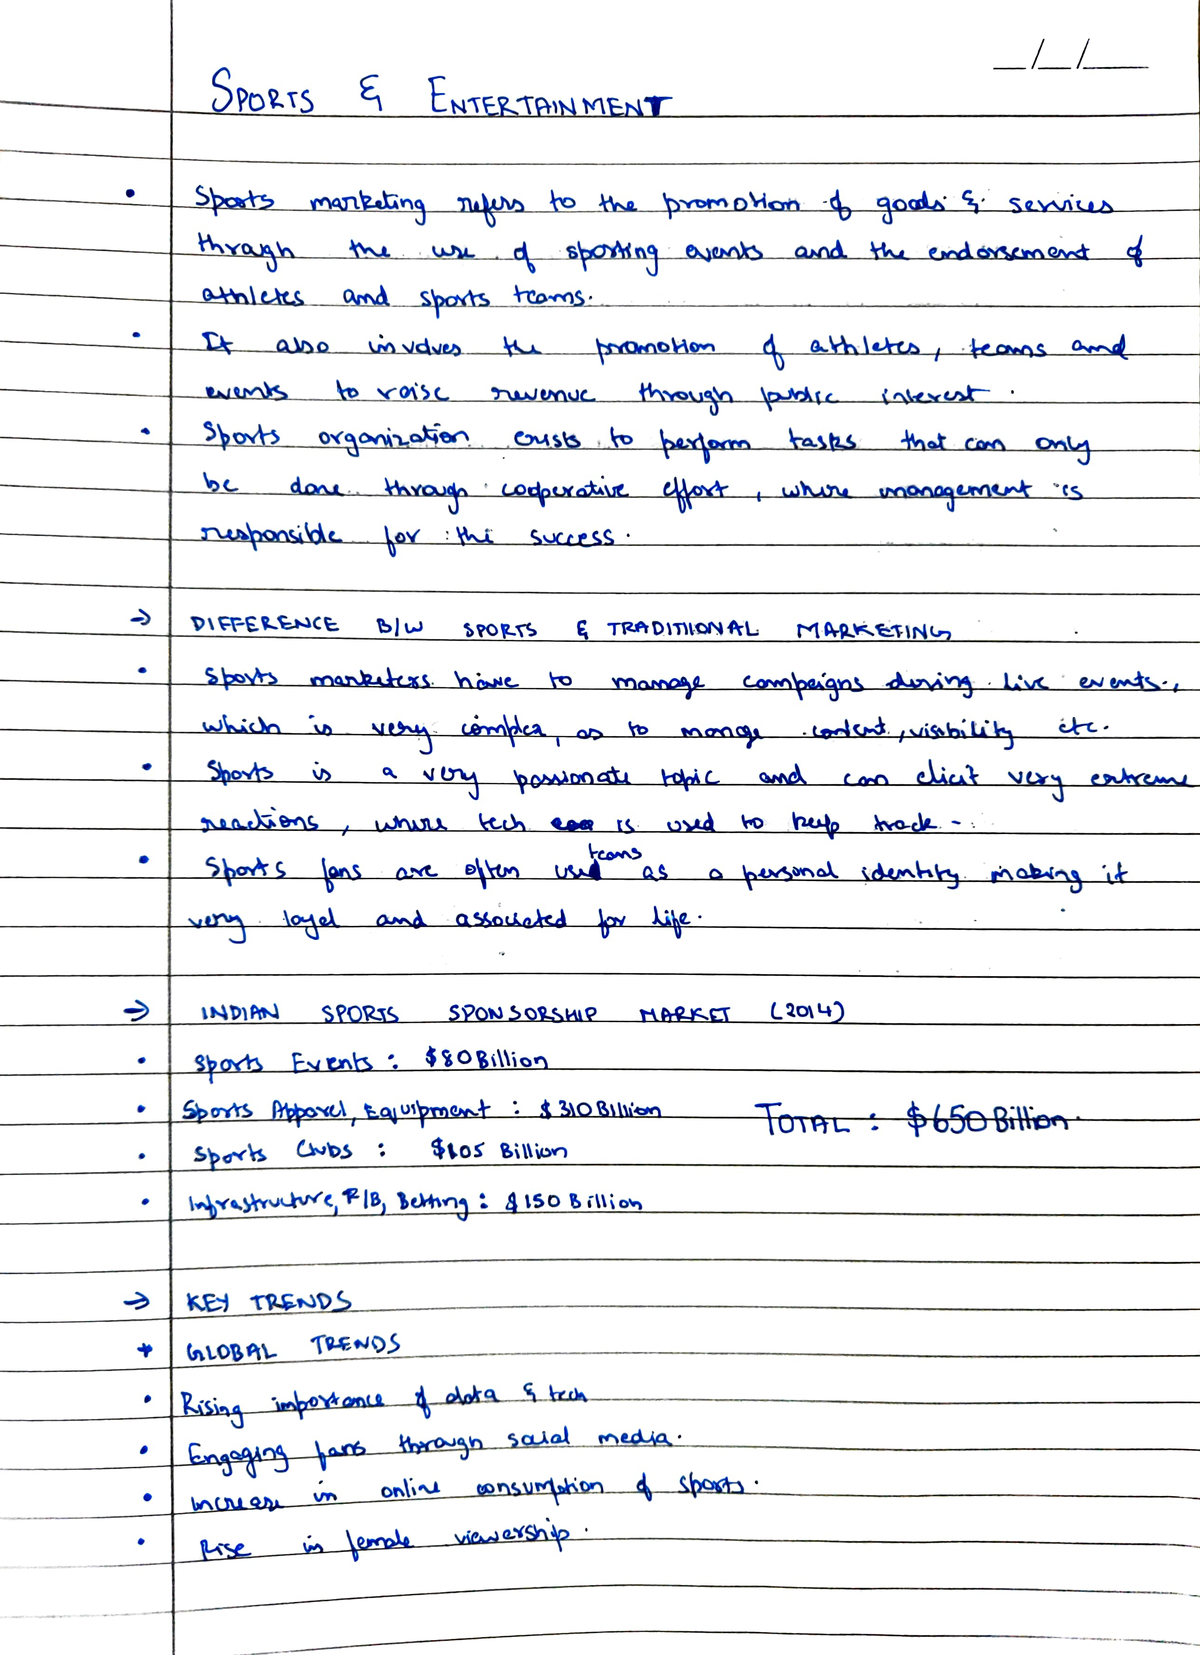 _/_/__
SPORTS & ENTERTAINMENT
• Sports marketing refers to the promotion of goods & services
thragh the use of sporting events and the endorsement of
athletes and sports teams.
• It also involves the promotion of athletes, teams and
events to raise revenue through public interest.
• Sports organization exists to perform tasks that can only
be done through cooperative effort, where management is
responsible for the success.
→ DIFFERENCE B/W SPORTS & TRADITIONAL MARKETING
• Sports marketers have to manage campaigns during live events,
which is very complex, as to manage content, visibility etc.
• Sports is a very passionate topic and can elicit very extreme
reactions, where tech is used to keep track.
teams
• Sports fans are often used as a personal identity making it
very loyal and associated for life.
→ INDIAN SPORTS SPONSORSHIP MARKET (2014)
• Sports Events : $80 Billion
• Sports Apparel, Equipment : $310 Billion TOTAL : $650 Billion.
• Sports Clubs : $105 Billion
• Infrastructure, F/B, Betting : $150 Billion
→ KEY TRENDS
* GLOBAL TRENDS
• Rising importance of data & tech
• Engaging fans through social media.
• Increase in online consumption of sports.
• Rise in female viewership.